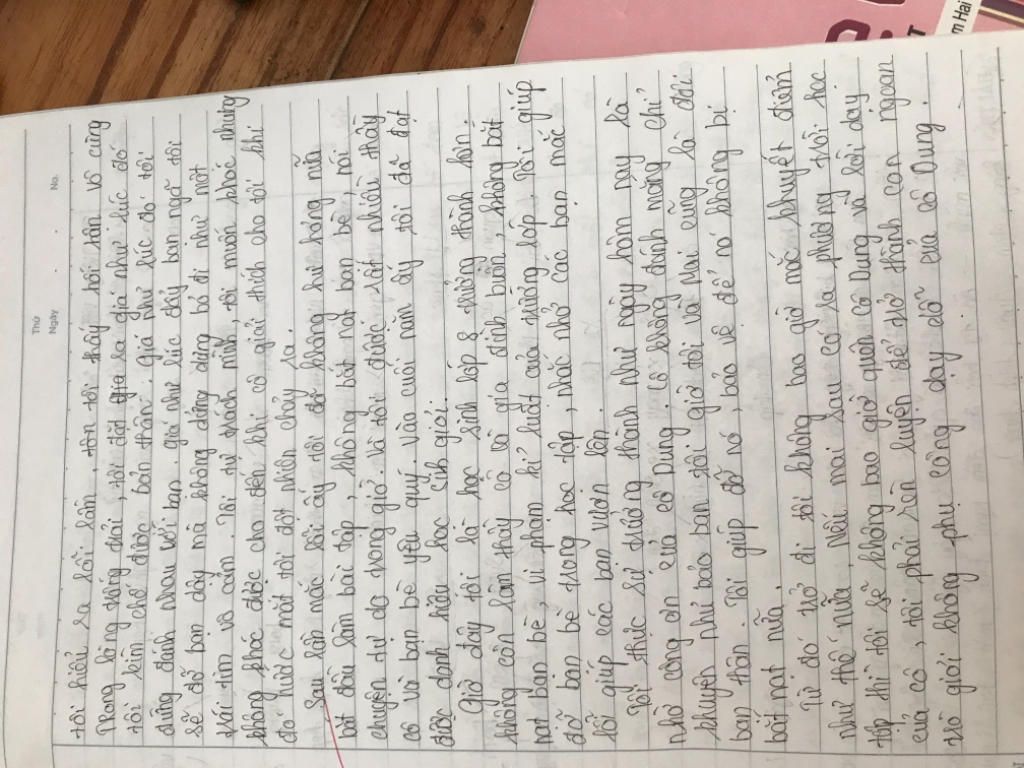 Thứ
Ngày
No.
tôi hiểu ra lỗi lầm, tôi thấy hối hận vô cùng
Trong lòng trống trải, tôi đặt gia ra giá như lúc đó
tôi kìm chế được bản thân. giá như lúc đó tôi
đừng đánh nhau với bạn. giá như lúc đấy bạn ngã tôi
sẽ đỡ bạn dậy mà không dửng dưng bỏ đi như một
trái tim vô cảm. Tôi tự trách mình, tôi muốn khóc nhưng
không khóc được cho đến khi cô giải thích cho tôi thì
do nước mắt tôi đột nhiên chảy ra.
Sau lần mắc lỗi ấy tôi đó không hư hỏng nữa
bắt đầu làm bài tập, không bắt nạt bạn bè, nói
chuyện tự do trong giờ. Và tôi được rất nhiều thầy
cô và bạn bè yêu quý. Vào cuối năm ấy tôi đã đạt
được danh hiệu học sinh giỏi.
Giờ đây tôi là học sinh lớp 8 trưởng thành hơn,
không còn làm thầy cô và gia đình buồn, không bắt
nạt bạn bè, vi phạm kỉ luật của trường lớp. Tôi giúp
đỡ bạn bè trong học tập, nhắc nhở các bạn mắc
lỗi giúp các bạn vươn lên.
Tôi thực sự trưởng thành như ngày hôm nay là
nhờ công ơn của cô Dung. Cô không đánh mắng chỉ
khuyên nhủ bảo ban tôi giờ tôi và Mai cũng là đôi
bạn thân. Tôi giúp đỡ nó, bảo vệ để nó không bị
bắt nạt nữa.
Từ đó trở đi tôi không bao giờ mắc khuyết điểm
như thế nữa. Nếu mai sau có xa phương trời học
tập thì tôi sẽ không bao giờ quên cô Dung và lời dạy
của cô, tôi phải rèn luyện để trở thành con ngoan
trò giỏi không phụ công dạy dỗ của cô Dung.
m Hai